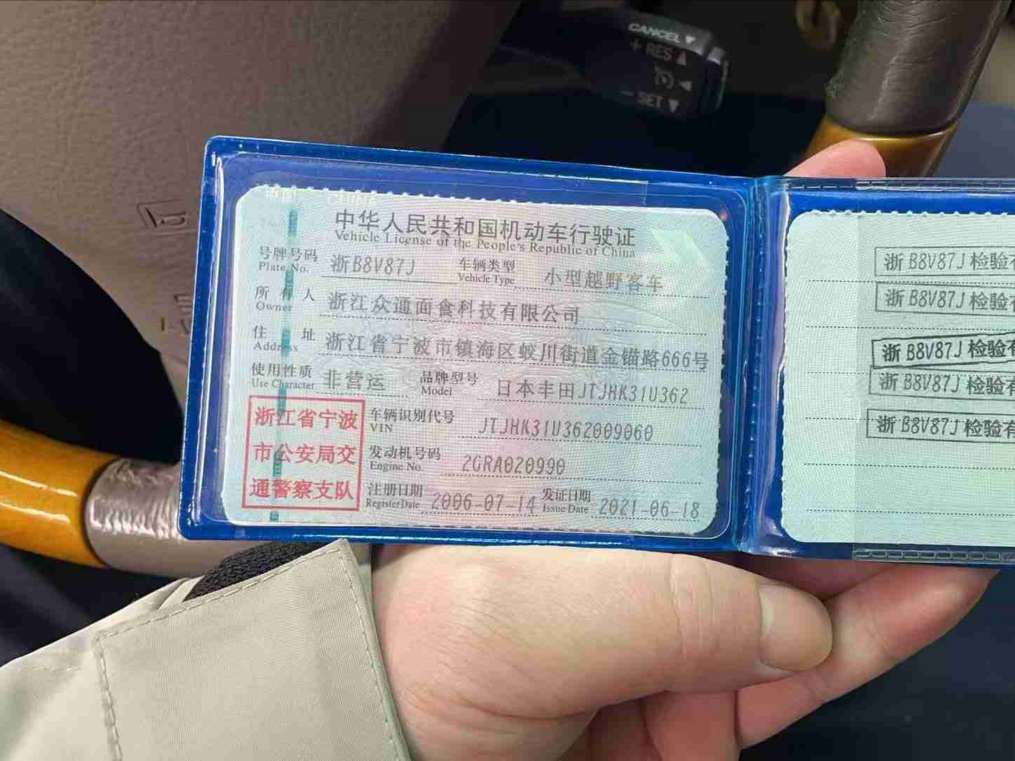 CANCEL▼
+ RES▲
- SET▲
中华人民共和国机动车行驶证
Vehicle License of the People's Republic of China
号牌号码 浙B8V87J 车辆类型 小型越野客车
Plate No. Vehicle Type
所有人 浙江众通面食科技有限公司
Owner
住址 浙江省宁波市镇海区蛟川街道金锚路666号
Address
使用性质 非营运 品牌型号 日本丰田JTJHK31U362
Use Character Model
浙江省宁波
市公安局交
通警察支队
车辆识别代号 JTJHK31U362009060
VIN
发动机号码 2GRA020990
Engine No.
注册日期 2006-07-14 发证日期 2021-06-18
Register Date Issue Date
浙B8V87J检验
浙B8V87J检验
浙B8V87J检验
浙B8V87J检验
浙B8V87J检验